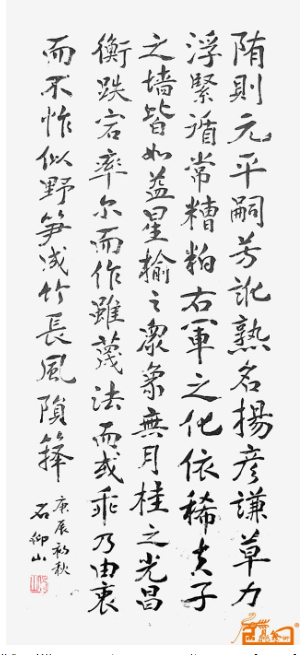 隋則元平嗣芳訛熟名揚彦謙草力
浮緊循常糟粕右軍之化依稀夫子
之墙皆如益星榆之衆象無月桂之光昌
衡跌宕率尔而作雖蔑法而或乖乃由衷
而不怍似野笋成竹長風隕籜
庚辰初秋
石仰山